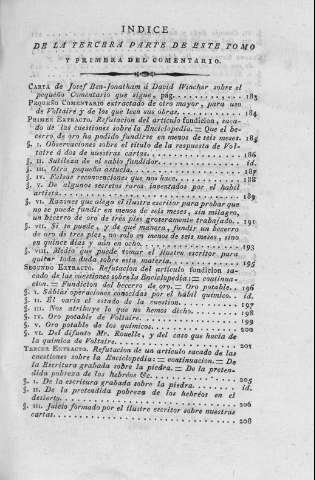 INDICE
DE LA TERCERA PARTE DE ESTE TOMO
Y PRIMERA DEL COMENTARIO.
CARTA de Josef Ben-Jonatham á David Winchor sobre el
pequeño Comentario que sigue, pág. 183
PEQUEÑO COMENTARIO extractado de otro mayor, para uso
de Voltaire y de los que leen sus obras. 184
PRIMER EXTRACTO. Refutacion del artículo fundicion, saca-
do de las cuestiones sobre la Enciclopedia. = Que el be-
cerro de oro no ha podido fundirse en menos de seis meses. 184
§. I. Observaciones sobre el título de la respuesta de Vol-
taire á dos de nuestras cartas. 186
§. II. Sutileza de el sabio fundidor. id.
§. III. Otra pequeña astucia. 187
§. IV. Falsas reconvenciones que nos hace. 188
§. V. De algunos secretos raros inventados por el hábil
artista. 189
§. VI. Razones que alega el ilustre escritor para probar que
no se puede fundir en menos de seis meses, sin milagro,
un becerro de oro de tres pies groseramente trabajado. 191
§. VII. Si se puede, y de qué manera, fundir un becerro
de oro de tres pies, no solo en menos de seis meses, sino
en quince dias y aun en ocho. 193
§. VIII. Medio que puede tomar el ilustre escritor para
quitar toda duda sobre esta materia. 195
SEGUNDO EXTRACTO. Refutacion del artículo fundicion sa-
cado de las cuestiones sobre la Enciclopedia: = continua-
cion. = Fundicion del becerro de oro. = Oro potable. 196
§. I. Sábias operaciones conocidas por el hábil químico. id.
§. II. El varía el estado de la cuestion. 197
§. III. Nos atribuye lo que no hemos dicho. 198
§. IV. Oro potable de Voltaire. 199
§. V. Oro potable de los químicos. 200
§. VI. Del difunto Mr. Rouelle, y del caso que hacia de
la química de Voltaire. 201
TERCER EXTRACTO. Refutacion de un artículo sacado de las
cuestiones sobre la Enciclopedia: = continuacion. = De
la Escritura grabada sobre la piedra. = De la preten-
dida pobreza de los hebréos &c. 205
§. I. De la escritura grabada sobre la piedra. id.
§. II. De la pretendida pobreza de los hebréos en el
desierto. 206
§. III. Juicio formado por el Ilustre escritor sobre nuestras
cartas. 208